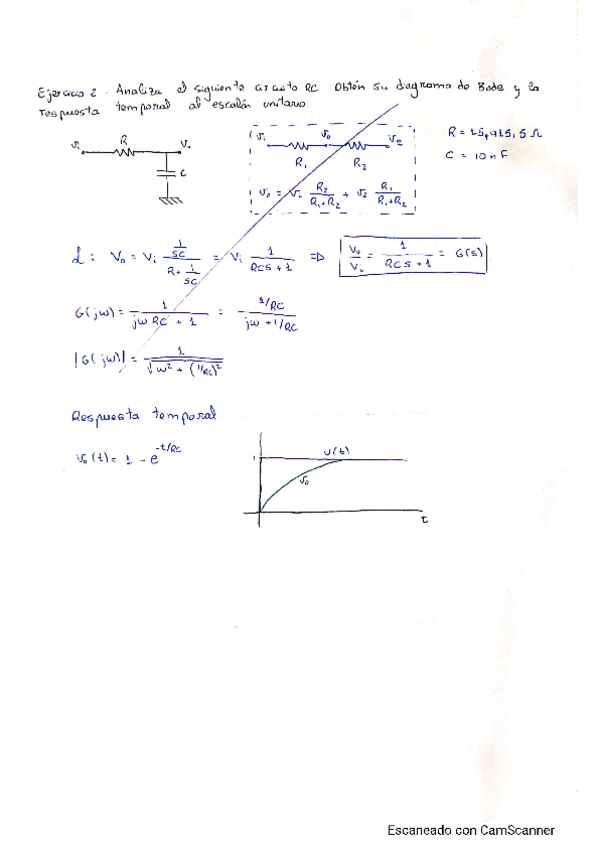 Ejercicio 2. Analiza el siguiente circuito RC. Obtén su diagrama de Bode y la
respuesta temporal al escalón unitario
Vi R Vo C
Vi Vo V2
R1 R2
Vo = Vi R2/(R1+R2) + V2 R1/(R1+R2)
C = 10 nF
L: Vo = Vi (1/SC)/(R + 1/SC) = Vi 1/(RCS + 1) ⇒ Vo/Vi = 1/(RCS + 1) = G(s)
G(jw) = 1/(jw RC + 1) = (1/RC)/(jw + 1/RC)
|G(jw)| = 1/√(w² + (1/RC)²)
Respuesta temporal
Vo(t) = 1 - e^(-t/RC)
1 u(t)
Vo
t
Escaneado con CamScanner